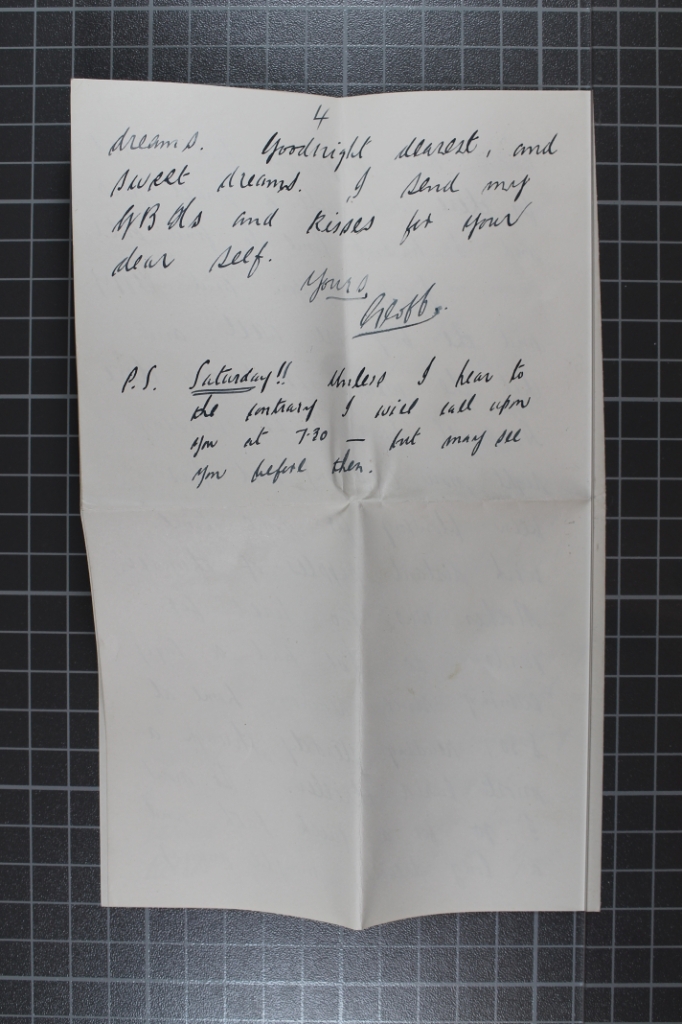 4
dreams. Goodnight dearest, and
sweet dreams. I send my
and kisses for your
dear self.
Yours
Geoff.
P.S. Saturday!! Unless I hear to
the contrary I will call upon
you at 7.30 — but may see
you before then.